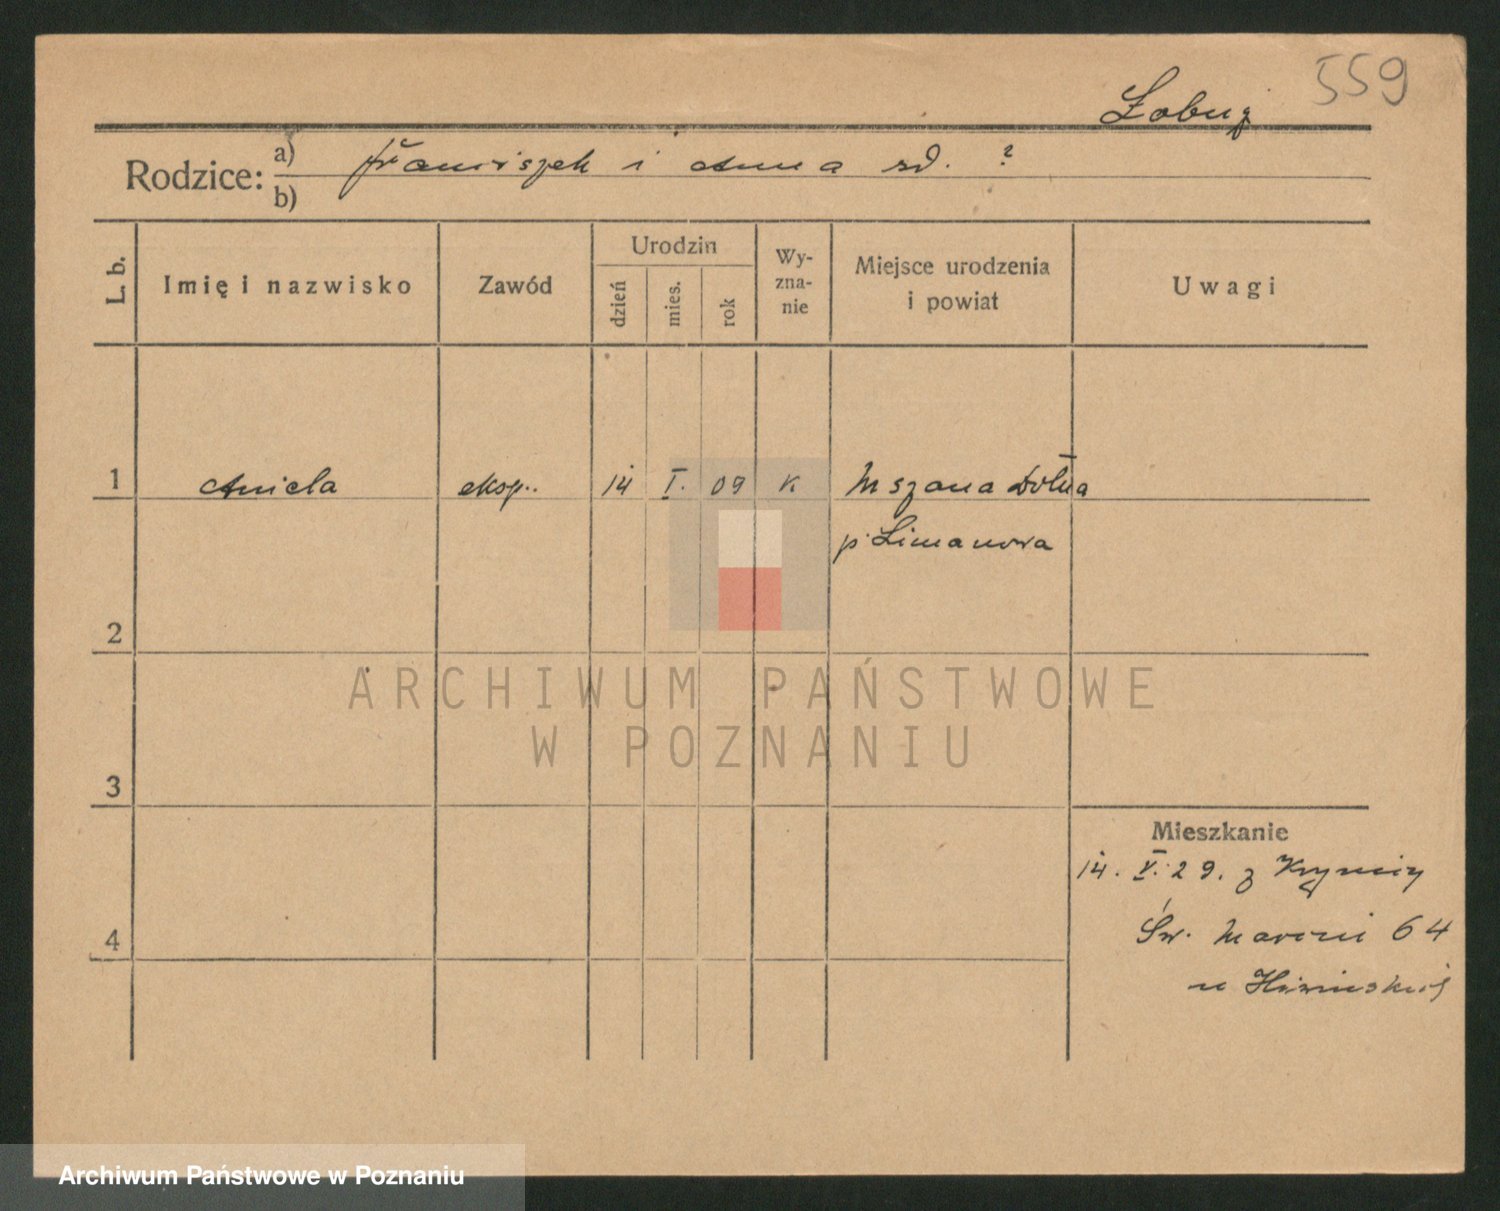 559
Łobuz
Rodzice: a) Franciszek i Anna zd. ?
b)
L. b.
Imię i nazwisko
Zawód
Urodzin
dzień
mies.
rok
Wy-
zna-
nie
Miejsce urodzenia
i powiat
Uwagi
1 Aniela eksp. 14 I. 09 K Mszana Dolna
p. Limanowa
2
ARCHIWUM PAŃSTWOWE
W POZNANIU
3
Mieszkanie
14. V. 29. z Krynicy
4
Św. Marcin 64
u
Archiwum Państwowe w Poznaniu